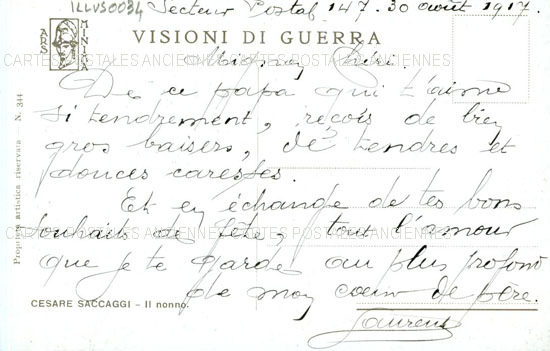 ILLVS0034
Secteur Postal 147. 30 août 1917.
ARS MINIMA
VISIONI DI GUERRA
CARTES POSTALES ANCIENNES CARTES POSTALES ANCIENNES
Mignon chéri.
De ce papa qui t'aime
si tendrement, reçois de bien
gros baisers, de tendres et
douces caresses.
Et en échange de tes bons
souhaits de fête, tout l'amour
CARTES POSTALES ANCIENNES CARTES POSTALES ANCIENNES
que je te garde au plus profond
de mon coeur de père.
Laurent
CESARE SACCAGGI - Il nonno.
Proprietà artistica riservata - N. 344